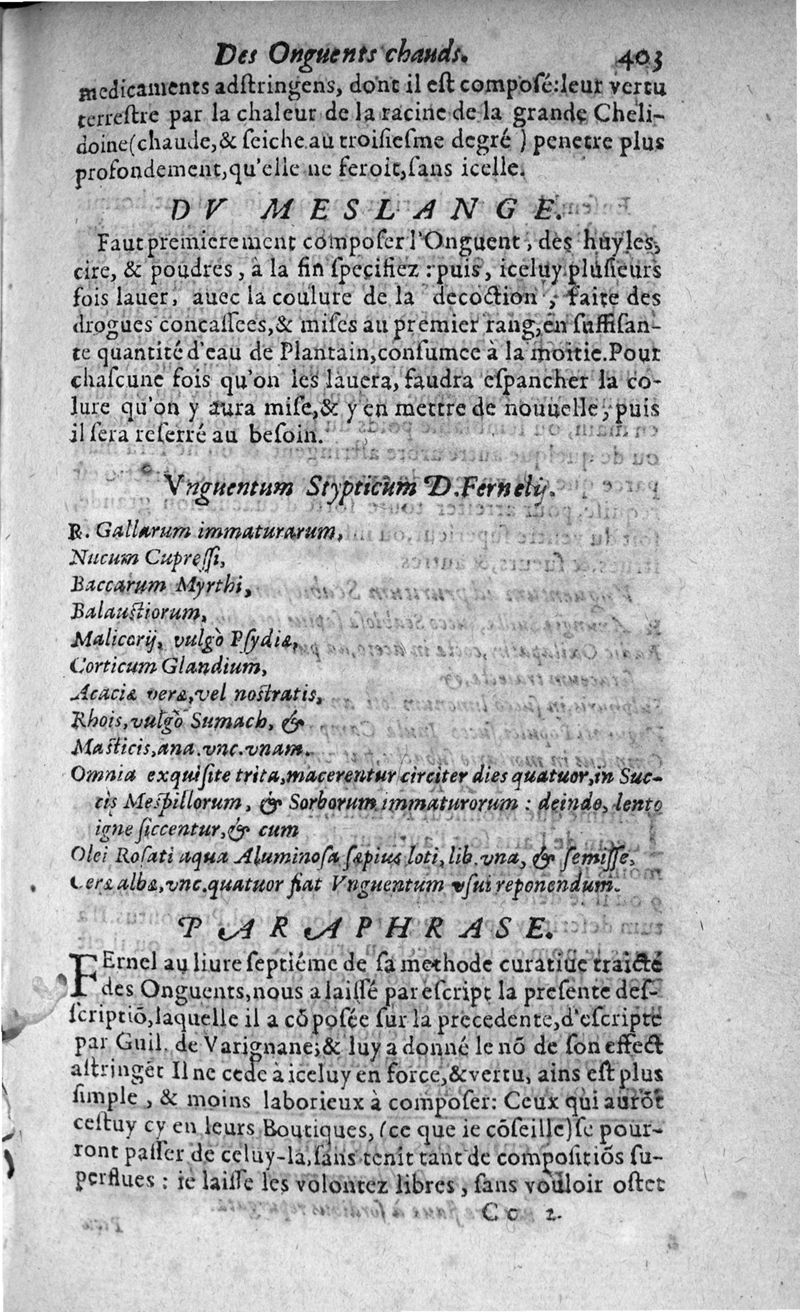 Des Onguents chauds. 403
medicaments adſtringens, dont il eſt compoſé:leur vertu
terreſtre par la chaleur de la racine de la grande Cheli-
doine(chaude,& ſeiche au troiſieſme degré ) penetre plus
profondement,qu'elle ne feroit,ſans icelle.
DV MESLANGE.
Faut premierement compoſer l'Onguent, des huyles,
cire, & poudres, à la fin ſpecifiez : puis, iceluy pluſieurs
fois lauer, auec la coulure de la decoction, faite des
drogues concaſſees,& miſes au premier rang,en ſuffiſan-
te quantité d'eau de Plantain,conſumee à la moitie.Pour
chaſcune fois qu'on les lauera, faudra eſpancher la co-
lure qu'on y aura miſe,& y en mettre de nouuelle, puis
il ſera reſerré au beſoin.
Vnguentum Stypticum D.Fernelij.
R. Gallarum immaturarum,
Nucum Cupreſſi,
Baccarum Myrthi,
Balauſtiorum,
Malicorij, vulgò Pſydiæ,
Corticum Glandium,
Acaciæ veræ,vel noſtratis,
Rhois,vulgò Sumach, &
Maſticis,ana.vnc.vnam.
Omnia exquiſite trita,macerentur circiter dies quatuor,in Suc-
cis Meſpillorum, & Sorborum immaturorum : deinde, lento
igne ſiccentur,& cum
Olei Roſati aqua Aluminoſa ſæpius loti, lib.vna, & ſemiſſe,
Ceræ albæ,vnc.quatuor fiat Vnguentum vſui reponendum.
PARAPHRASE.
FErnel au liure ſeptiéme de ſa methode curatiue traicté
des Onguents,nous a laiſſé par eſcript la preſente deſ-
ſcriptiõ,laquelle il a cõpoſée ſur la precedente,d'eſcripte
par Guil. de Varignane;& luy a donné le nõ de ſon effect
aſtringẽt Il ne cede à iceluy en force,&vertu, ains eſt plus
ſimple, & moins laborieux à compoſer: Ceux qui aurõt
ceſtuy cy en leurs Boutiques, (ce que ie cõſeille)ſe pour-
ront paſſer de celuy-là,ſans tenir tant de compoſitiõs ſu-
perflues : ie laiſſe les volontez libres, ſans vouloir oſter
Cc 2.